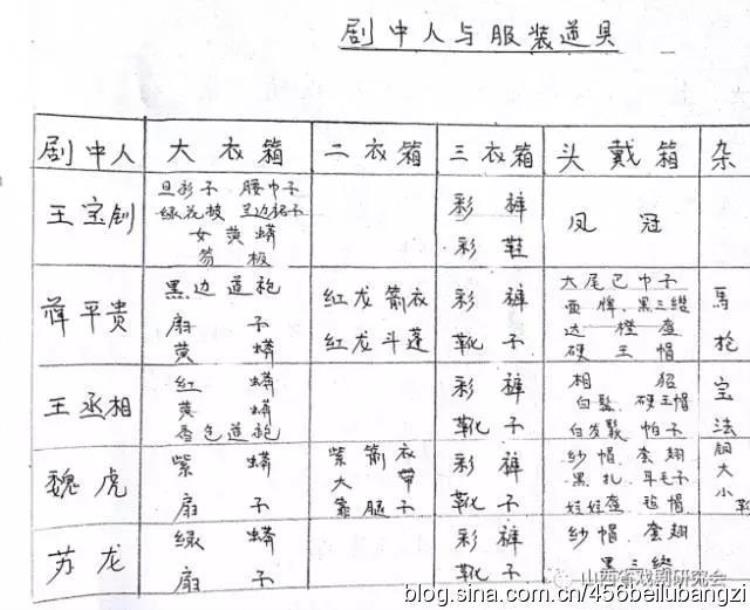 剧中人与服装道具
剧中人 大衣箱 二衣箱 三衣箱 头戴箱 杂
王宝钏
旦衫子 腰巾子
绿花帔
女黄蟒
笏板
彩裤
彩鞋
凤冠
薛平贵
黑边道袍
扇子
黄蟒
红龙箭衣
红龙斗蓬
彩裤
靴子
大尾巴巾子
面牌、黑三绺
硬王帽
马
枪
王丞相
红蟒
黄蟒
香色道袍
彩裤
靴子
相貂
白髯、硬王帽
白发鬏 帕子
宝
法
魏虎
紫蟒
扇子
紫箭衣
大带
靠腿子
彩裤
靴子
纱帽、套翅
黑扎、耳毛子
娃娃查 毡帽
铜
大
小
苏龙
绿蟒
扇子
彩裤
靴子
纱帽、套翅
黑三绺
山西省戏剧研究会
blog.sina.com.cn/456beilubangzi